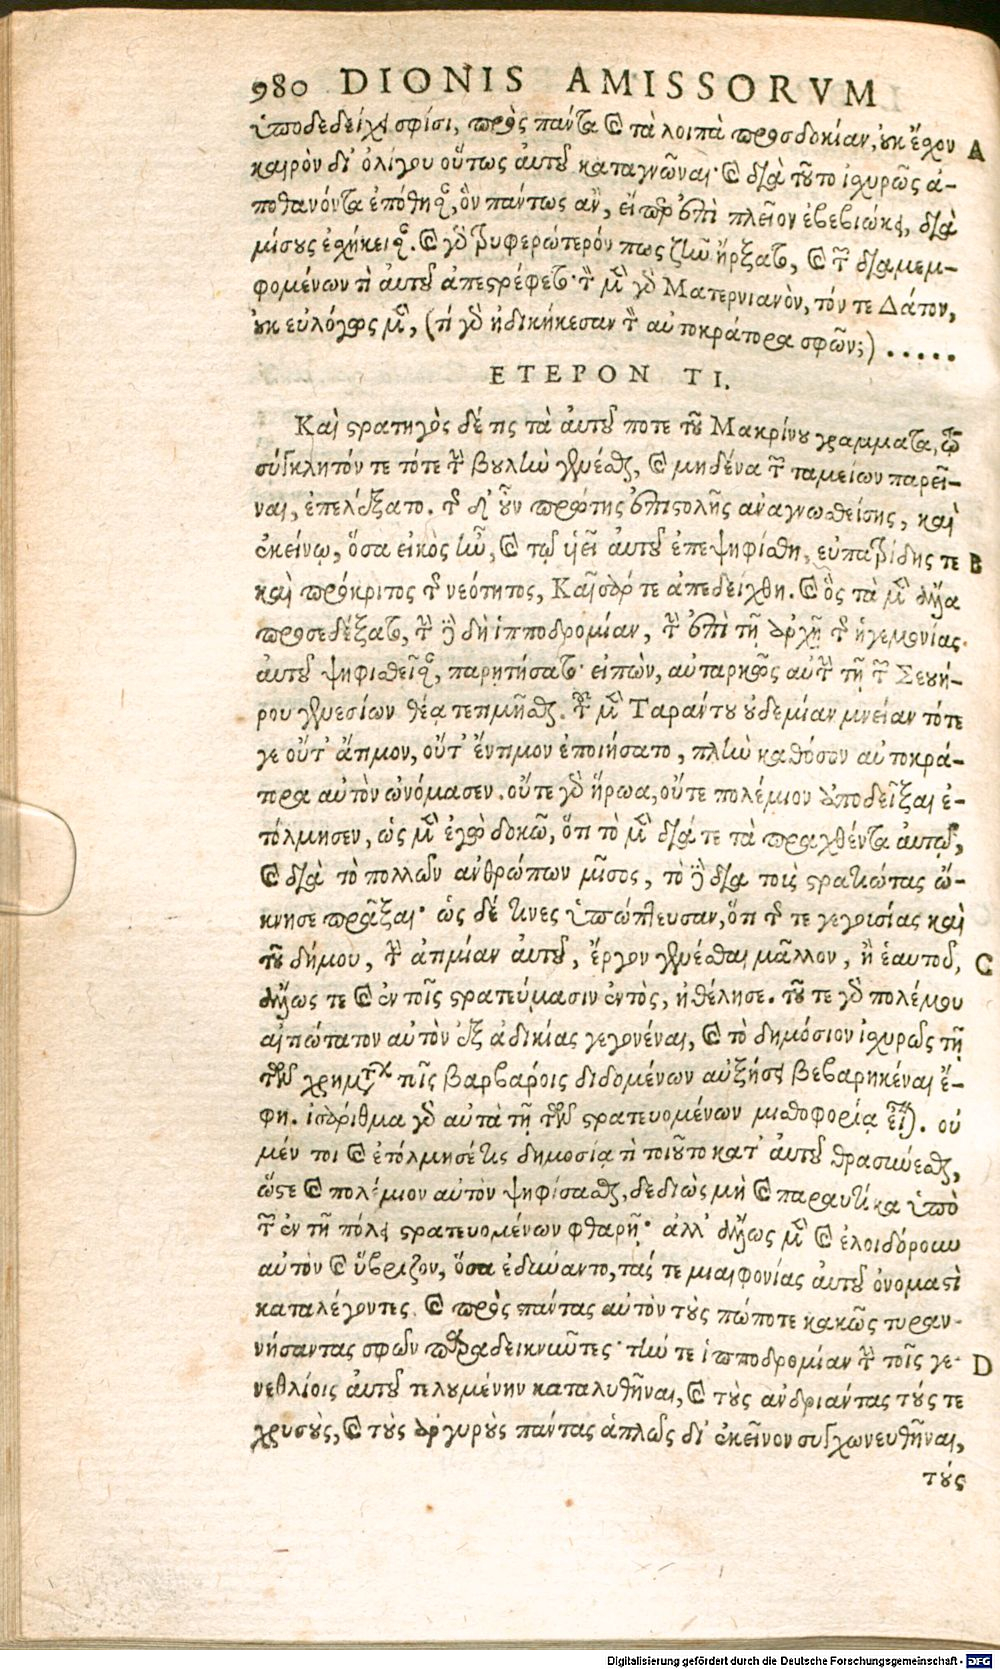 980 DIONIS AMISSORVM
ὑποδεδείχει σφίσι, πρὸς πάντα καὶ τὰ λοιπὰ προσδοκίαν, οὐκ ἔχον A
καιρὸν δι' ὀλίγου οὕτως αὐτοῦ καταγνῶναι· καὶ διὰ τοῦτο ἰσχυρῶς ἀ-
ποθανόντα ἐπόθησαν, ὃν πάντως ἂν, εἴπερ ἐπὶ πλεῖον ἐβεβιώκει, διὰ
μίσους ἐσχήκεισαν. καὶ γὰρ τρυφερώτερόν πως ζῆν ἤρξατο, καὶ τῶν διαμεμ-
φομένων τὶ αὐτοῦ ἀπεστρέφετο· τὸν μὲν γὰρ Ματερνιανὸν, τόν τε Δάτον,
οὐκ εὐλόγως μὲν, (τί γὰρ ἠδικήκεσαν τὸν αὐτοκράτορα σφῶν;) . . . . .
ΕΤΕΡΟΝ ΤΙ.
Καὶ στρατηγὸς δέ τις τὰ αὐτοῦ ποτε τοῦ Μακρίνου γράμματα, ὡς
σύγκλητόν τε τότε τὴν βουλὴν γενέσθαι, καὶ μηδένα τῶν ταμείων παρεῖ-
ναι, ἐπελέξατο. τῆς δ' οὖν πρώτης ἐπιστολῆς ἀναγνωσθείσης, καὶ
ἐκείνῳ, ὅσα εἰκὸς ἦν, καὶ τῷ υἱεῖ αὐτοῦ ἐπεψηφίσθη, εὐπατρίδης τε B
καὶ πρόκριτος τῆς νεότητος, Καῖσάρ τε ἀπεδείχθη. καὶ ὃς τὰ μὲν ἄλλα
προσεδέξατο, τὴν δὲ δὴ ἱπποδρομίαν, τὴν ἐπὶ τῇ ἀρχῇ τῆς ἡγεμονίας
αὐτοῦ ψηφισθεῖσαν, παρῃτήσατο εἰπὼν, αὐταρκῶς αὐτὴν τῇ τῶν Σευή-
ρου γενεσίων θέᾳ τετιμῆσθαι. τοῦ μέντοι Ταράντου οὐδεμίαν μνείαν τότε
γε οὔτ' ἄτιμον, οὔτ' ἔντιμον ἐποιήσατο, πλὴν καθόσον αὐτοκρά-
τορα αὐτὸν ὠνόμασεν. οὔτε γὰρ ἥρωα, οὔτε πολέμιον ἀποδεῖξαι ἐ-
τόλμησεν, ὡς μὲν ἐγὼ δοκῶ, ὅτι τὸ μὲν διά τε τὰ πραχθέντα αὐτῷ,
καὶ διὰ τὸ πολλῶν ἀνθρώπων μῖσος, τὸ δὲ διὰ τοὺς στρατιώτας ὤ-
κνησε πρᾶξαι· ὡς δέ τινες ὑπώπτευσαν, ὅτι τῆς τε γερουσίας καὶ
τοῦ δήμου, τὴν ἀτιμίαν αὐτοῦ, ἔργον γενέσθαι μᾶλλον, ἢ ἑαυτοῦ, C
ἄλλως τε καὶ ἐν τοῖς στρατεύμασιν ἐντὸς, ἠθέλησε. τοῦ τε γὰρ πολέμου
αἰτιώτατον αὐτὸν ἐξ ἀδικίας γεγονέναι, καὶ τὸ δημόσιον ἰσχυρῶς τῇ
τῶν χρημάτων τοῖς βαρβάροις διδομένων αὐξήσει βεβαρηκέναι ἔ-
φη. ἰσάριθμα γὰρ αὐτὰ τῇ τῶν στρατευομένων μισθοφορίᾳ εἶναι. οὐ
μέν τοι καὶ ἐτόλμησέ τις δημοσίᾳ τὶ τοιοῦτο κατ' αὐτοῦ θρασύνεσθαι,
ὥστε καὶ πολέμιον αὐτὸν ψηφίσασθαι, δεδιὼς μὴ καὶ παραυτίκα ὑπὸ
τῶν ἐν τῇ πόλει στρατευομένων φθαρῇ· ἀλλ' ἄλλως μὲν καὶ ἐλοιδόρουν
αὐτὸν καὶ ὕβριζον, ὅσα ἐδύναντο, τάς τε μιαιφονίας αὐτοῦ ὀνομαστὶ
καταλέγοντες. καὶ πρὸς πάντας αὐτὸν τοὺς πώποτε κακῶς τυραν-
νήσαντας σφῶν παραδεικνύντες· τήν τε ἱπποδρομίαν τὴν τοῖς γε- D
νεθλίοις αὐτοῦ τελουμένην καταλυθῆναι, καὶ τοὺς ἀνδριάντας τούς τε
χρυσοῦς, καὶ τοὺς ἀργυροῦς πάντας ἁπλῶς δι' ἐκεῖνον συγχωνευθῆναι,
τούς
Digitalisierung gefördert durch die Deutsche Forschungsgemeinschaft - DFG